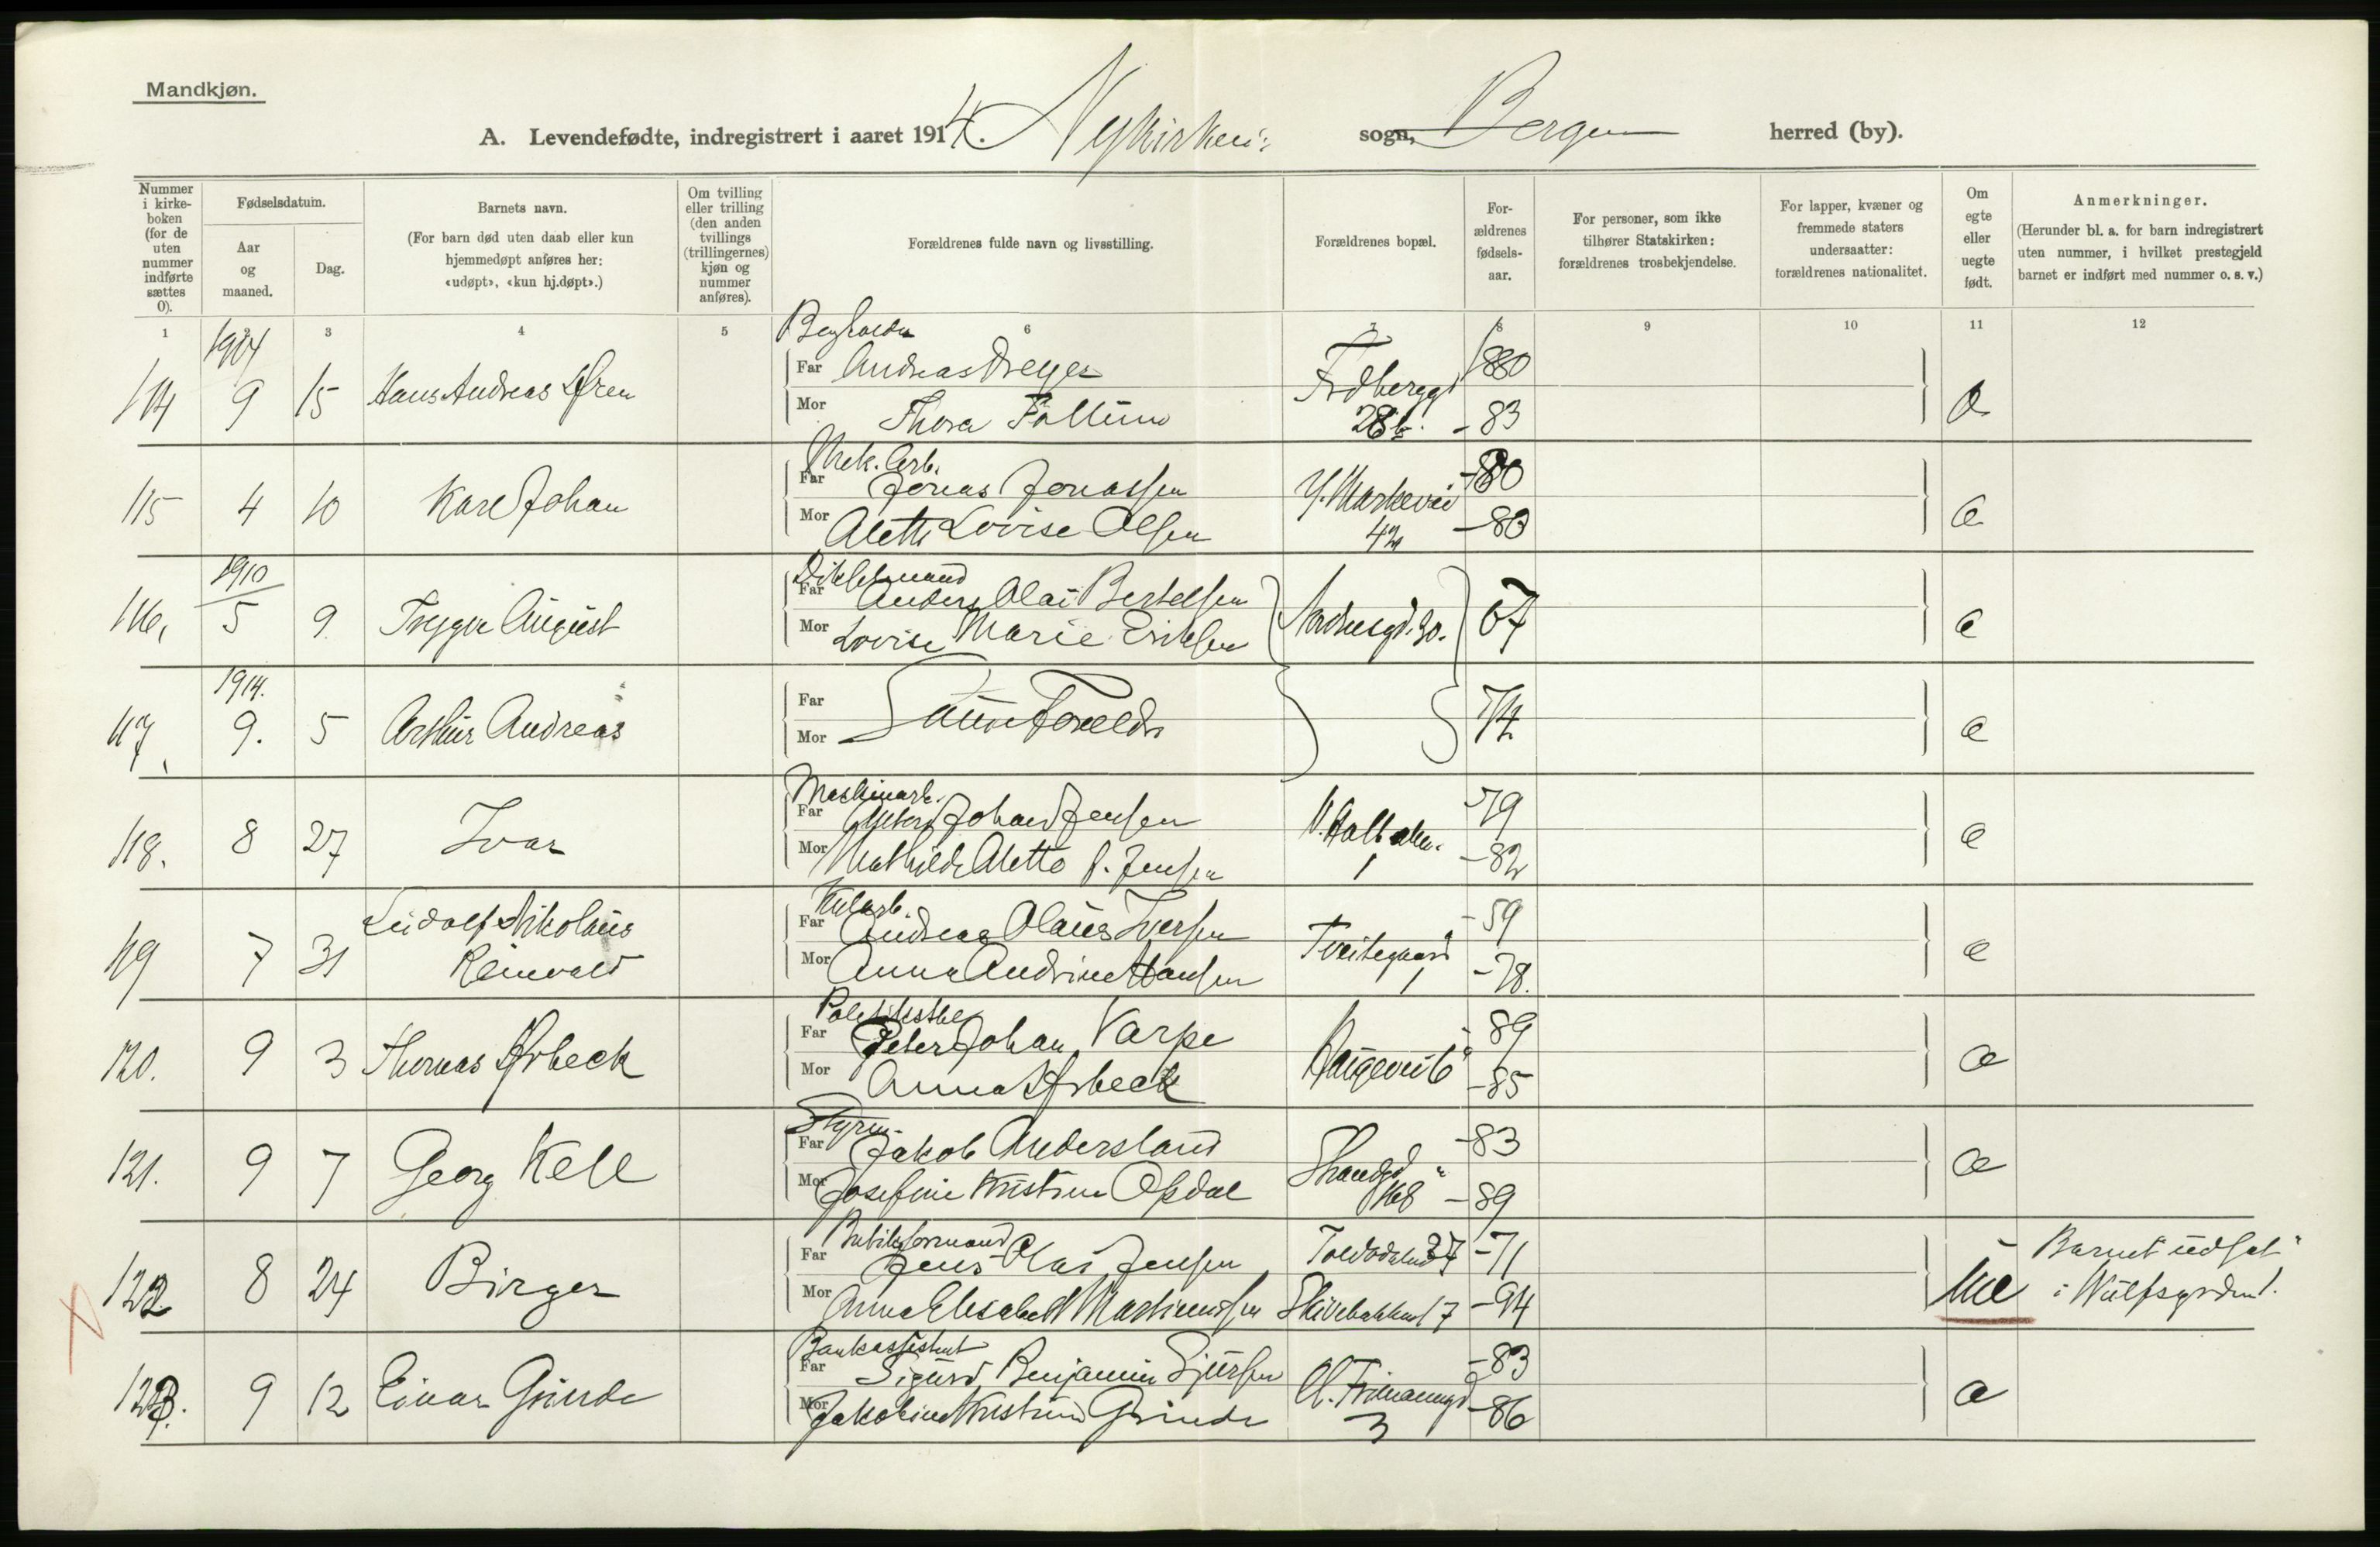 Mandkjøn.
A. Levendefødte, indregistrert i aaret 1914. Nykirken sogn, Bergen herred (by).
Nummer i kirke-boken (for de uten nummer indførte sættes 0).
Fødselsdatum.
Aar og maaned.
Dag.
Barnets navn.
(For barn død uten daab eller kun hjemmedøpt anføres her: «udøpt», «kun hj.døpt».)
Om tvilling eller trilling (den anden tvillings (trillingernes) kjøn og nummer anføres).
Forældrenes fulde navn og livsstilling.
Forældrenes bopæl.
For-ældrenes fødsels-aar.
For personer, som ikke tilhører Statskirken: forældrenes trosbekjendelse.
For lapper, kvæner og fremmede staters undersaatter: forældrenes nationalitet.
Om egte eller uegte født.
Anmerkninger.
(Herunder bl. a. for barn indregistrert uten nummer, i hvilket prestegjeld barnet er indført med nummer o. s. v.)
1 2 3 4 5 6 7 8 9 10 11 12
1914
114 9 15 Hans Andreas
Far Andreas Dreyer 1880
Mor Thora - 83
28b.
115 4 10 Karl Johan
Mek. Arb.
Far Jonas Jonassen -80
Mor Alette Lovise Olsen -80
Y. Markevei 42
e
1910
116, 5 9 Trygve August
Far Anders Olai Bertelsen 67
Mor Lovise Marie Eriksen
30.
e
1914.
117, 9. 5 Arthur Andreas
Far Mor Samme Foreldre 74
e
118. 8 27 Ivar
Maskinarb.
Far Johan Jensen -79
Mor Mathilde Alette J. Jensen -82
1
e
119 7 31 Ludolf Nikolaus
Reinvald
Far Andreas Olaus Iversen - 59
Mor Anna Andrine Hansen -78.
Tveitegaard 1
e
120. 9 3 Thomas Arbeck
Far Peter Johan Varpe 89
Mor Anna Arbeck -85
Haugevei 6
e
121. 9 7 Georg Kell
Styrm.
Far Jakob Andersland -83
Mor Josefine Kristine Opdal -89
Strandgd 168
e
122. 8 24 Birger
Far Jens Olai Jensen -71
Mor Anna Elisabeth Martinussen -94
Toldbodalmd 37
Skivebakken 17
ue
Barnet udsat
i Wulfsgården 1.
123. 9 12 Einar Grinde
Bankassistent
Far Sigurd Benjamin Sjursen -83
Mor Jakobine Kristine Grinde -86
Cl. Frimannsgd 3
e